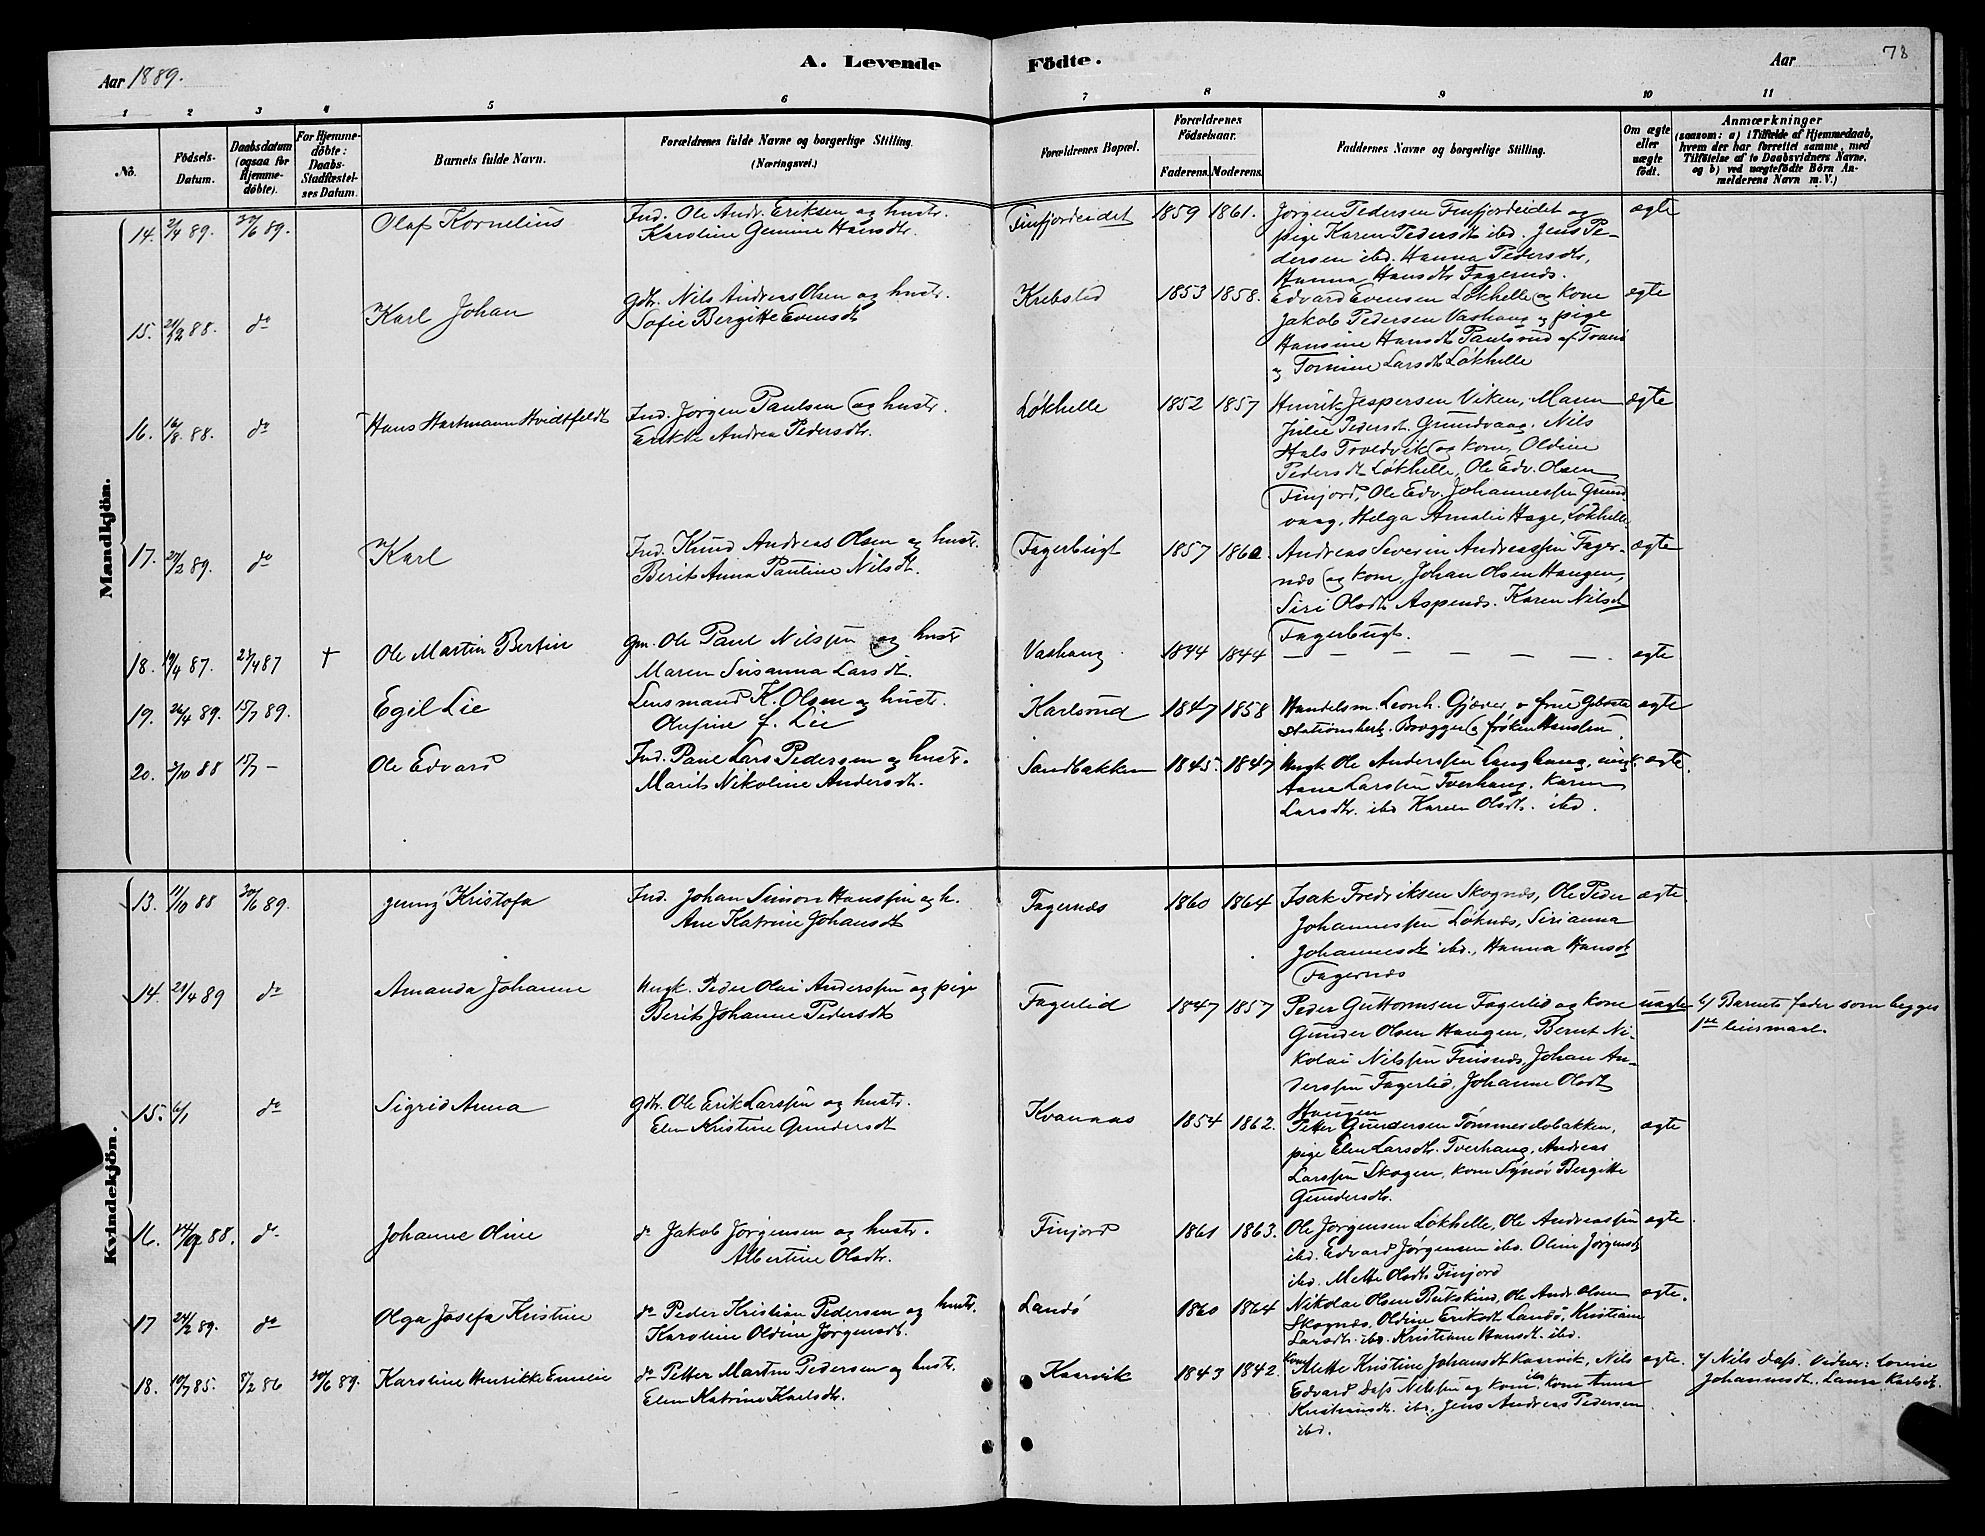 Aar 1889.
A. Levende
Födte.
Aar
78
1 2 3 4 5 6 7 8 9 10 11
No.
Födsels-Datum.
Daabsdatum (ogsaa for Hjemme-döbte).
For Hjemme-döbte: Daabs-Stadfæstel-ses Datum.
Barnets fulde Navn.
Forældrenes fulde Navne og borgerlige Stilling.
(Næringsvei.)
Forældrenes Bopæl.
Forældrenes Födselsaar.
Faderens. Moderens.
Faddernes Navne og borgerlige Stilling.
Om ægte eller uægte födt.
Anmærkninger
(saasom: a) i Tilfælde af Hjemmedaab, hvem der har forrettet samme, med Tilföielse af to Daabsvidners Navne, og b) ved uægtefödte Börn Anmelderens Navn m. V.)
Mandkjön.
14. 2/4 89. 30/6 89. Olaf Kornelius
Ind. Ole Andr. Eriksen og hustr.
Karoline Gemine Hansdtr.
Finfjordeidet 1859 1861.
Jørgen Pedersen Finfjordeidet og
pige Karen Pedersdtr ibd. Jens Pe-
dersen ibd. Hanna Pedersdtr,
Hanna Hansdtr Fagernæs.
ægte
15. 21/12 88. do Karl Johan
Gdbr. Nils Andreas Olsen og hustr.
Sofie Bergitte Evensdt
Krebsted 1853 1858.
Edvard Evensen Løkhelle og kone
Jakob Pedersen Vashaug og pige
Hansine Hansdtr Paulsrud af Tranø
og Tomine Larsdtr Løkhelle
ægte
16. 16/8 88. do Hans Hartmann Hvidtfeldt
Ind. Jørgen Paulsen og hustr.
Erikke Andrea Pedersdtr.
Løkhelle 1852 1857
Henrik Jespersen Viken, Maren
Julie Pedersdt. Grundvaag, Nils
Hals Troldvik og kone, Oldine
Pedersdt Løkhelle, Ole Edv. Olsen
Finjord, Ole Edv. Johannessen Grund-
vaag, Helga Amalie Hage, Løkhelle
ægte
17. 27/2 89. do Karl
Ind. Knud Andreas Olsen og hustr.
Berit Anna Pauline Nilsdt.
Fagerbugt 1857 1860.
Andreas Severin Andreassen Fager-
næs og kone, Johan Olsen Haugen,
Siri Olsdtr Aspenæs. Karen Nilsdt
Fagerbugt.
ægte
18. 19/4 87. 23/4 87 † Ole Martin Bertin
Gm. Ole Paul Nilssen og hustr
Maren Susanna Larsdt.
Vashaug 1844 1844 — — — — — — ægte
19. 26/4 89. 15/7 89. Egil Lie
Lensmand K. Olsen og hustr.
Olufine f. Lie
Karlsrud 1847 1858
Handelsm. Leonh. Gjæver & frue Gibostad
Stationsbest. Brøgger & frøken Hanssen.
ægte
20. 3/10 88 15/7 — Ole Edvard
Ind. Paul Lars Pedersen og hustr.
Marit Nikoline Andersdt.
Sandbakken 1845. 1847
Ungk. Ole Anderssen Langhaug, ungk.
Aane Larssen Tverhaug. Karen
Larsdtr. ibd Karen Olsdt. ibd.
ægte.
Kvindekjön.
13. 11/10 88 30/6 89. Jenny Kristofa
Ind. Johan Simon Hanssen og h.
Ane Katrine Johansdt
Fagernæs 1860 1864
Isak Fredriksen Skognæs, Ole Peder
Johannessen Løknæs, Serianna
Johannesdt ibd., Hanna Hansdt
Fagernæs
ægte.
14. 21/4 89 do Amanda Johanne
Ungk. Peder Olai Anderssen og pige
Berit Johanne Pedersdt
Fagerlid 1847 1857
Peder Guttormsen Fagerlid og kone
Gunder Olsen Haugen, Bernt Ni-
kolai Nilssen Finsnæs, Johan An-
derssen Fagerlid, Johanne Olsdt
Haugen
uægte
b/ Barnets fader som begges
1ste leiermaal.
15. 6/1 do Sigrid Anna
Gdbr. Ole Erik Larssen og hustr.
Elen Kristine Gundersdt
Kvannaas 1854 1862.
Petter Gundersen Tømmerelvbakken,
pige Elen Larsdtr. Tverhaug, Andreas
Larssen Skogen, kone Synøv Bergitte
Gundersdtr.
ægte
16. do Johanne Oline
do Jakob Jørgensen og hustr.
Albertine Olsdtr.
Finjord 1861 1863.
Ole Jørgensen Løkhelle, Ole Andreassen
ibd. Edvard Jørgensen ibd. Oline Jørgensdt
ibd. Mette Olsdtr Finjord
ægte.
17 24/2 89. do Olga Josefa Kristine
do Peder Kristian Pedersen og hustr.
Karoline Oldine Jørgensdt.
Landø 1860 1864
Nikolai Olsen Bukskind, Ole Andr Olsen
Skognæs, Oldine Eriksdt Landø, Kristiane
Larsdtr. ibd. Kristiane Hansdt ibd.
ægte.
18. 10/7 85. 7/2 86 30/6 89. Karoline Henrikke Emelie
do Petter Martin Pedersen og hustr.
Elen Katrine Karlsdtr.
Kaarvik 1843 1842.
kone Mette Kristine Johansdt Kaarvik, Nils
Edvard Dass Nilssen og kone ibd, kone Anna
Kristiansdtr. ibd, Jens Andreas Pedersen
ibd.
ægte.
a/ Nils Dass. Vidner: Lovine
Johannesdt. Laura Karlsdt.